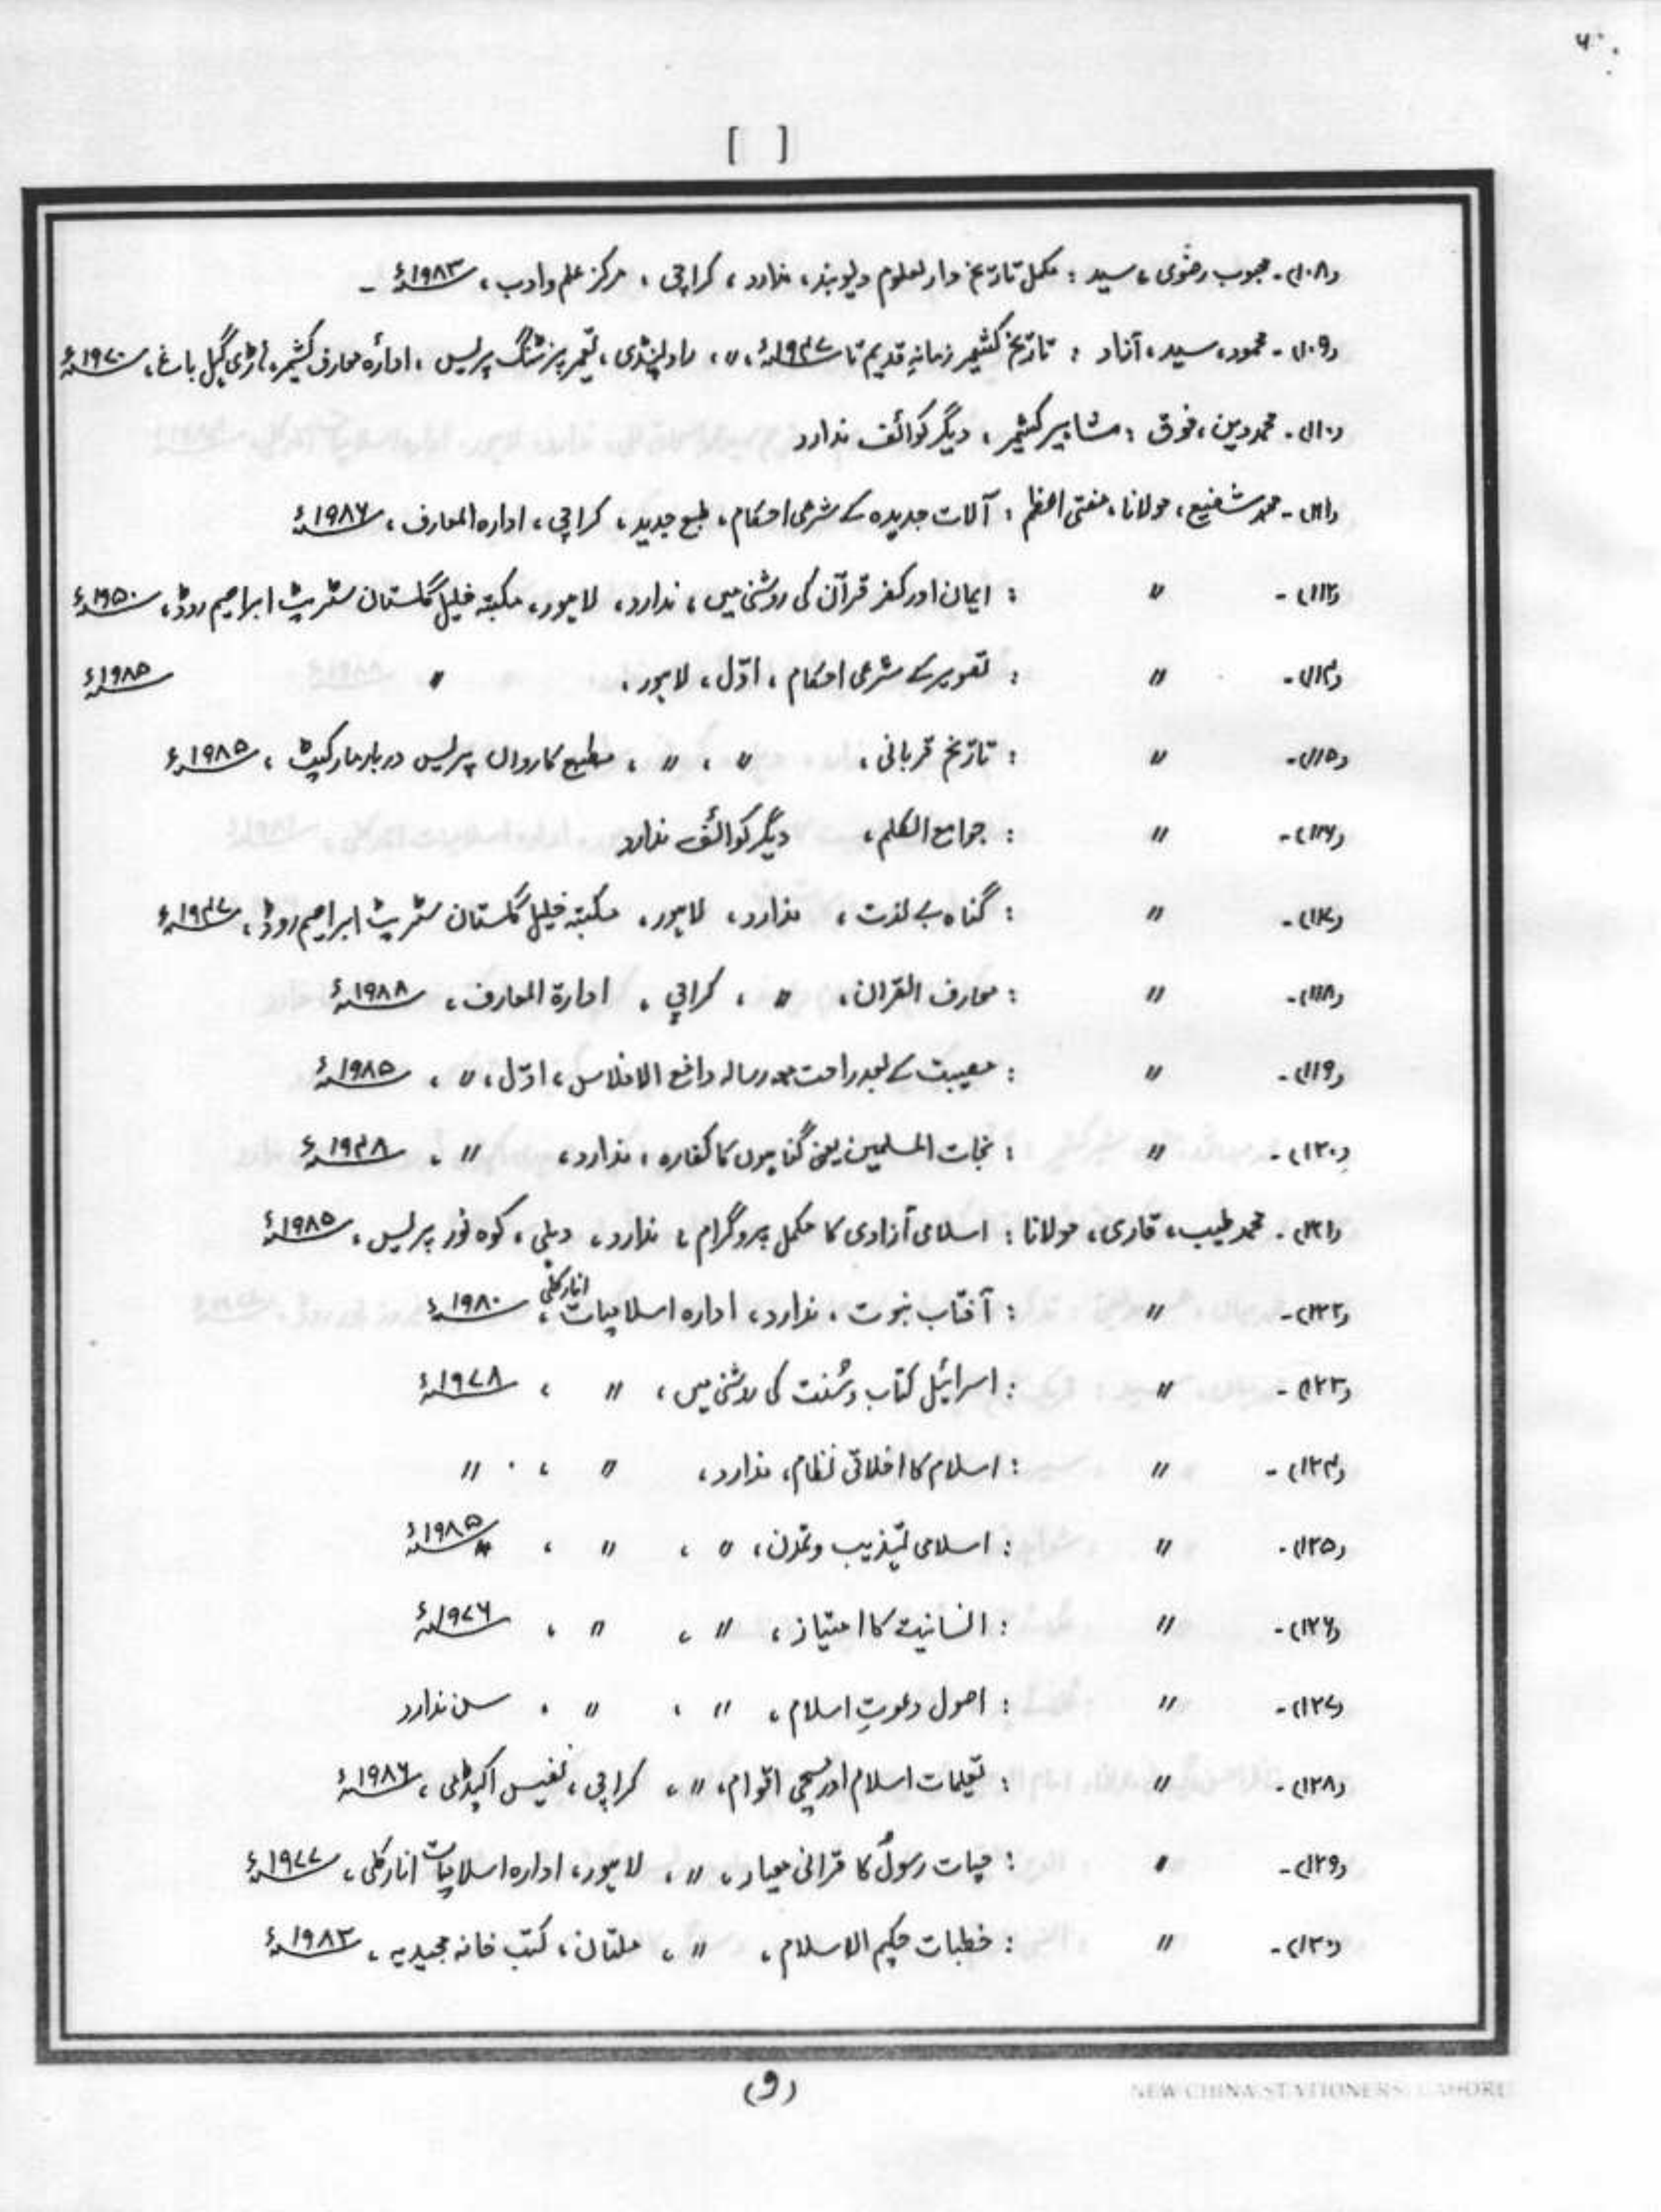 [ ]
(۱۰۸)۔ محبوب رضوی، سید : مکمل تاریخ دارلعلوم دیوبند، ندارد، کراچی، مرکز علم وادب، ۱۹۸۳ء ۔
(۱۰۹)۔ محمود، سید، آزاد : تاریخ کشمیر زمانہِ قدیم تا ۱۹۴۷ء، 〃، راولپنڈی، پرنٹنگ پریس، ادارٔہ معارف کشمیر، ناڑی گِل باغ، ۱۹۷۰ء
(۱۱۰)۔ محمد دین، فوق : مشاہیر کشمیر، دیگر کوائف ندارد
(۱۱۱)۔ محمد شفیع، مولانا، مفتی اعظم : آلات جدیدہ کے شرعی احکام، طبع جدید، کراچی، ادارہ المعارف، ۱۹۸۶ء
(۱۱۲)۔ 〃 : ایمان اور کفر قرآن کی روشنی میں، ندارد، لاہور، مکتبہ خلیل گلستان سٹریٹ ابراہیم روڈ، ۱۹۵۰ء
(۱۱۴)۔ 〃 : تصویر کے شرعی احکام، اوّل، لاہور، 〃 ۱۹۸۵ء
(۱۱۵)۔ 〃 : تاریخ قربانی، 〃، 〃، مطبع کارواں پریس دربار مارکیٹ، ۱۹۸۵ء
(۱۱۶)۔ 〃 : جوامع الکلم، دیگر کوائف ندارد
(۱۱۷)۔ 〃 : گناہ بے لذت، ندارد، لاہور، مکتبہ خلیل گلستان سٹریٹ ابراہیم روڈ، ۱۹۴۷ء
(۱۱۸)۔ 〃 : معارف القران، 〃، کراچی، ادارۃ المعارف، ۱۹۸۸ء
(۱۱۹)۔ 〃 : مصیبت کے بعد راحت معہ رسالہ دافع الافلاس، اوّل، 〃، ۱۹۸۵ء
(۱۲۰)۔ 〃 : نجات المسلمین یعنی گناہوں کا کفارہ، ندارد، 〃، ۱۹۴۸ء
(۱۲۱)۔ محمد طیب، قاری، مولانا : اسلامی آزادی کا مکمل پروگرام، ندارد، دہلی، کوہ نور پریس، ۱۹۸۵ء
(۱۲۲)۔ 〃 : آفتاب نبوت، ندارد، ادارہ اسلامیات انارکلی، ۱۹۸۰ء
(۱۲۳)۔ 〃 : اسرائیل کتاب وسُنت کی روشنی میں، 〃، ۱۹۷۸ء
(۱۲۴)۔ 〃 : اسلام کا اخلاقی نظام، ندارد، 〃، 〃
(۱۲۵)۔ 〃 : اسلامی تہذیب وتمدن، 〃، 〃، ۱۹۸۵ء
(۱۲۶)۔ 〃 : انسانیت کا امتیاز، 〃، 〃، ۱۹۷۶ء
(۱۲۷)۔ 〃 : اصول دعوتِ اسلام، 〃، 〃، سن ندارد
(۱۲۸)۔ 〃 : تعلیمات اسلام اور مسیحی اقوام، 〃، کراچی، نفیس اکیڈمی، ۱۹۸۶ء
(۱۲۹)۔ 〃 : حیات رسولؐ کا قرانی معیار، 〃، لاہور، ادارہ اسلامیات انارکلی، ۱۹۷۷ء
(۱۳۰)۔ 〃 : خطبات حکیم الاسلام، 〃، ملتان، کتب خانہ مجیدیہ، ۱۹۸۳ء
(9)
NEW CHINA STATIONERS LAHORE